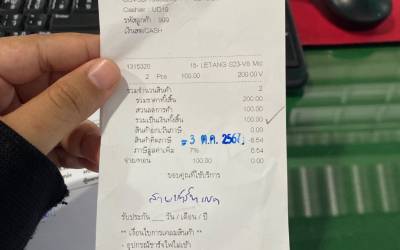 Cashier : UD16
รหัสลูกค้า : 999
เงินสด/CASH
1315320 15- LETANG S23-V6 Mic
2 Pcs 100.00 200.00 V
รวมจำนวนสินค้า 2
รวมราคาทั้งสิ้น 200.00
ส่วนลดการค้า 100.00
รวมเป็นเงินทั้งสิ้น 100.00
สินค้ายกเว้นภาษี 0.00
สินค้าคิดภาษี 6.54
= 3 ต.ค. 2567
ภาษีมูลค่าเพิ่ม 7% 6.54
จ่าย/ทอน 100.00 0.00
ขอบคุณที่ใช้บริการ
รับประกัน วัน / เดือน / ปี
** เงื่อนไขการเคลมสินค้า **
- อุปกรณ์ชาร์จไฟไม่เข้า